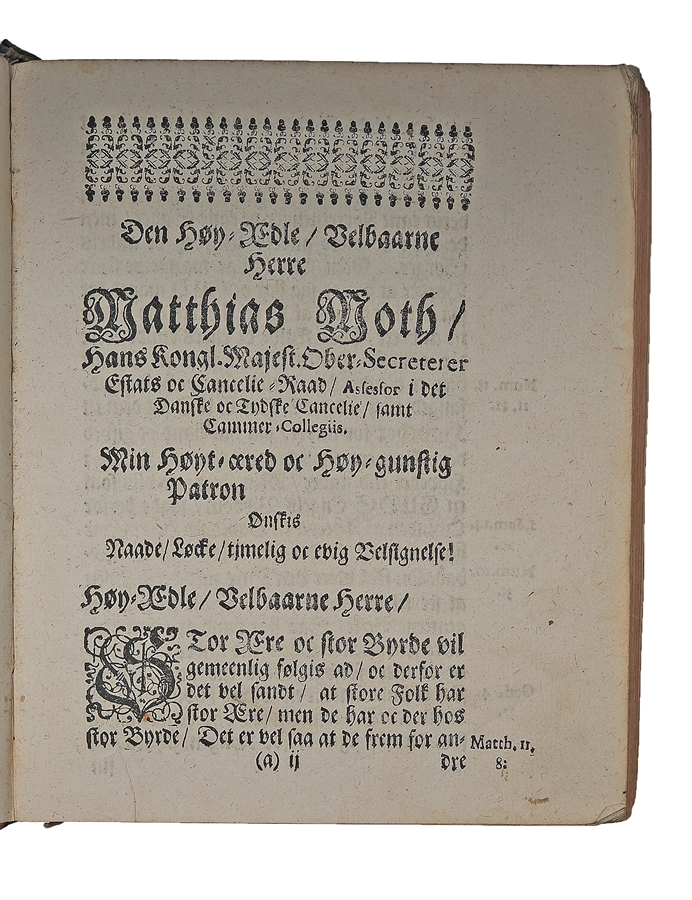 Den Høy-Ædle / Velbaarne
Herre
Matthias Moth /
Hans Kongl. Majest. Ober-Secreterer
Estats oc Cancelie-Raad / Assessor i det
Danske oc Tydske Cancelie / samt
Cammer-Collegiis.
Min Høyt-æred oc Høy-gunstig
Patron
Ønskis
Naade / Løcke / timelig oc evig Velsignelse!
Høy-Ædle / Velbaarne Herre /
STor Ære oc stor Byrde vil
gemeenlig følgis ad / oc derfor er
det vel sandt / at store Folk har
stor Ære / men de har oc der hos
stor Byrde / Det er vel saa at de frem for an- Matth. 11.
(a) ij dre 8: